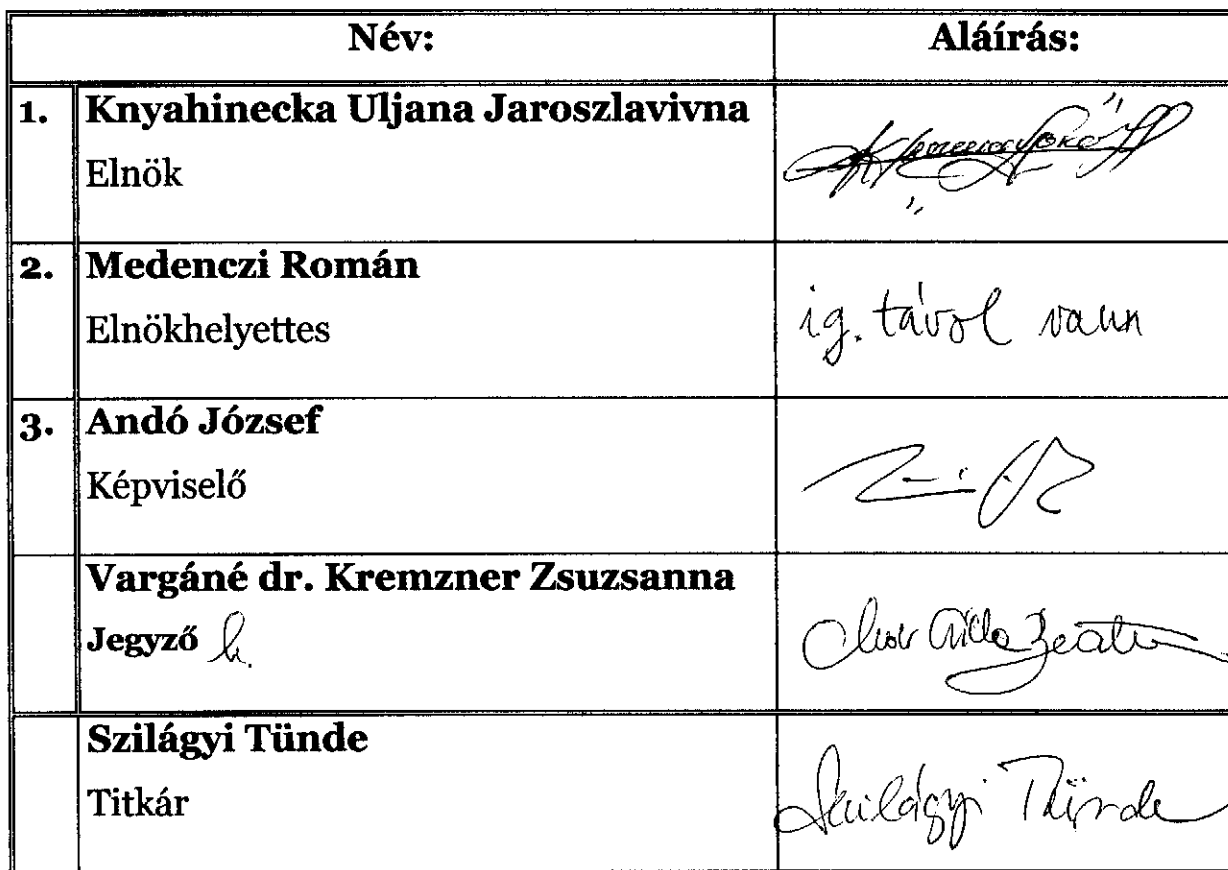 Név: Aláírás:
1. Knyahinecka Uljana Jaroszlavivna
Elnök
2. Medenczi Román
Elnökhelyettes
ig. távol vann
3. Andó József
Képviselő
Vargáné dr. Kremzner Zsuzsanna
Jegyző h.
Szilágyi Tünde
Titkár
Szilágyi Tünde